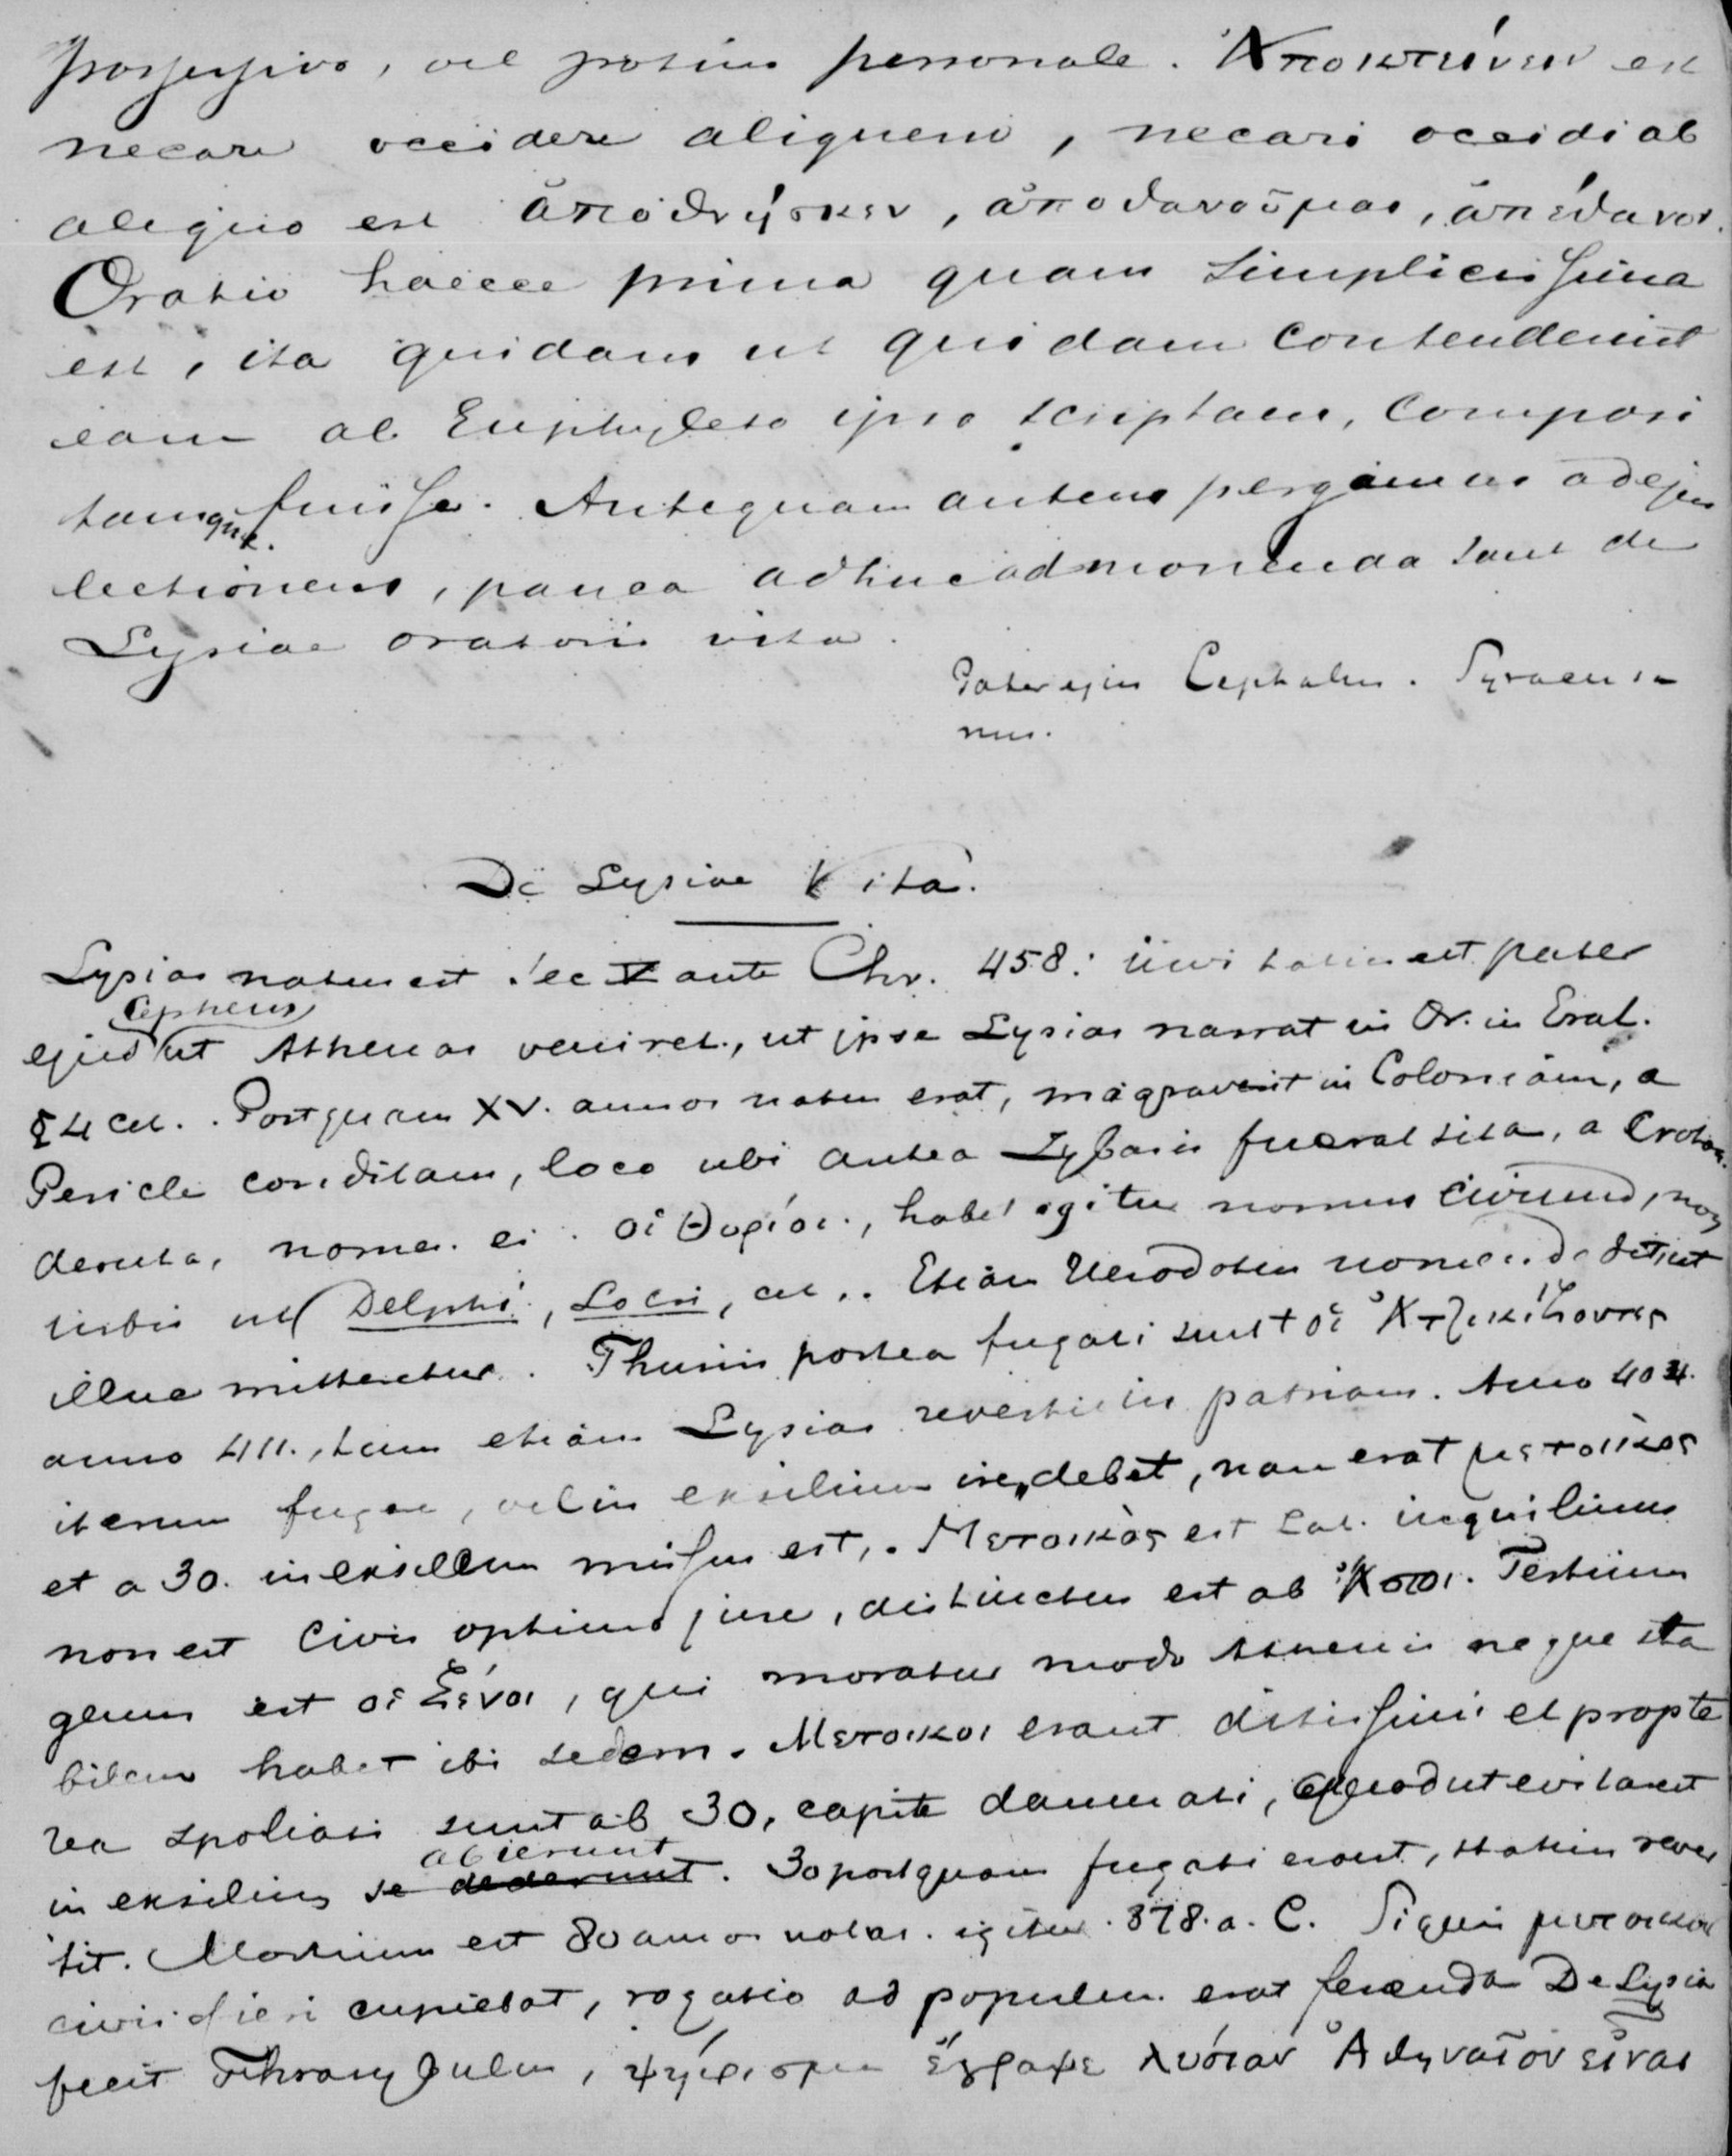 possessivo, vel potius personale. Ἀποκτείνειν est
necare occidere aliquem, necari occidi ab
aliquo est ἀποθνήσκειν, ἀποθανοῦμαι, ἀπέθανον.
Oratio haecce prima quam simplicissima
est, ita quidam ut quidam contenderint
eam ab Euphyleto ipso scriptam, composi
tamque fuisse. Antequam autem pergamus ad ejus
lectionem, pauca adhuc admonenda sunt de
Lysiae oratoris vita.
Pater ejus Cephalus. Syracusa
nus.
De Lysiae Vita.
Lysias natus est sec V ante Chr. 458: invitatus est pater
Cepheus
ejus ut Athenas veniret, ut ipse Lysias narrat in Or. in Erat.
§ 4 cet.. Postquam XV. annos natus erat, migraverit in Coloniam, a
Pericle conditam, loco ubi antea Sybaris fuerat sita, a Croton.
deruta, nomen ei. οἱ Θυρίοι., habet igitur nomen civium, non
urbis ut Delphi, Locri, cet.. Etiam Herodotus nomen dedit, ut
illuc mitteretur. Thuriis postea fugati sunt οἱ Ἀττικίζοντες
anno 411., tum etiam Lysias revertit in patriam. Anno 404.
iterum fugae, vel in exsilium ire debet, nam erat μετοικὸς
et a 30. in exsilium missus est,. Μετοικὸς est Lat. inquilinus
non est civis optimo jure, distinctus est ab Ἀστοι. Tertium
genus est οἱ Ξένοι, qui moratur modo Athenis neque sta
bilem habet ibi sedem. Μετοικοι erant ditissimi et propte
rea spoliati sunt ab 30, capite damnati, quod ut evitarent
abierunt
in exsilium se dederunt. 30 postquam fugati erant, statim rever
tit. Mortuus est 80 annos natus. igitur. 378. a. C. Si quis μετοικων
civis fieri cupiebat, rogatio ad populum erat ferenda De Lysia
fecit Thrasybulus, ψήφισμα ἔγραψε λυσίαν Ἀθηναῖον εἶναι